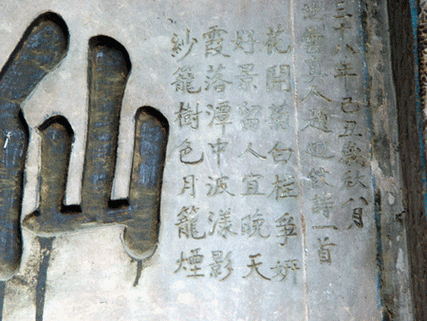 三十八年己丑歲秋八月
真人題晚霞詩一首
花開菊白桂爭妍
好景留人宜晚天
霞落潭中波漾影
紗籠樹色月籠煙
仙